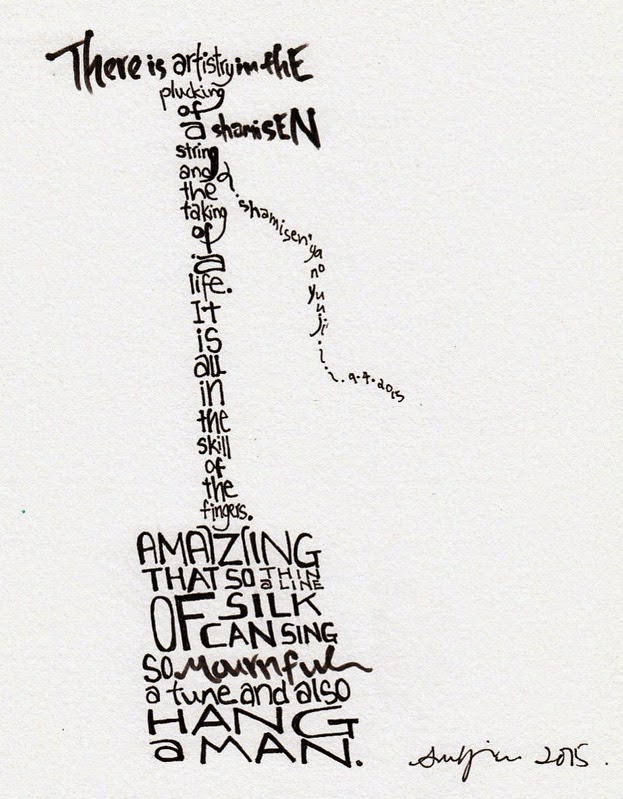 There is artistry in thE
plucking
of
a shamisEN
string
and
the
taking
of
a
life.
It
is
all
in
the
skill
of
the
fingers.
AMAZING
THAT SO THIN
a LINE
OF SILK
CAN SING
SO Mournful
a tune and also
HANG
a MAN.
shamisen'ya
no
yuuji
9.4.2015
2015.